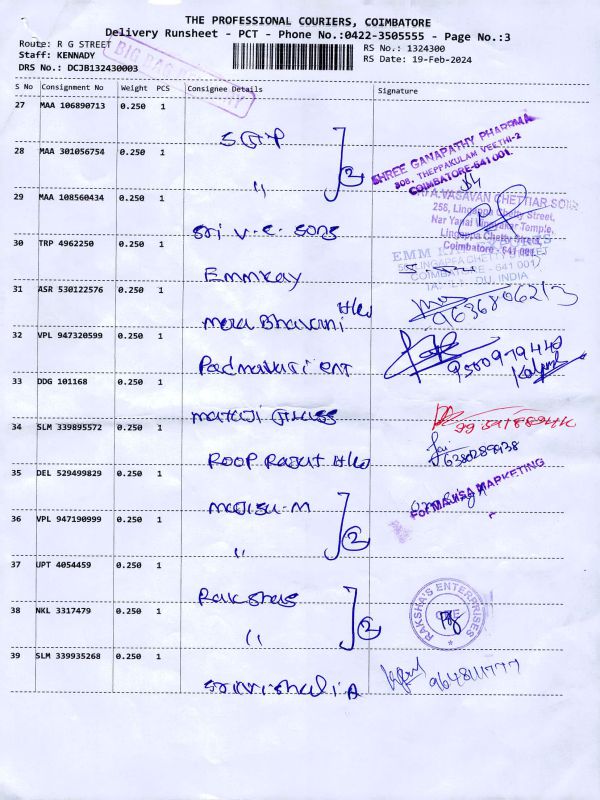 THE PROFESSIONAL COURIERS, COIMBATORE
Delivery Runsheet - PCT - Phone No.:0422-3505555 - Page No.:3
Route: R G STREET
RS No.: 1324300
Staff: KENNADY
RS Date: 19-Feb-2024
DRS No.: DCJB132430003
S No Consignment No Weight PCS Consignee Details Signature
27 MAA 106890713 0.250 1
SHREE GANAPATHY PHARMA
308, THEPPAKULAM VEETHI-2
COIMBATORE-641 001.
28 MAA 301056754 0.250 1
2
29 MAA 108560434 0.250 1
VASAVAN CHETTIAR SONS
256, Lingappa Chetty Street,
Temple,
Lingappa Chetty Street,
Coimbatore - 641 001.
Sri V.C. Sons
30 TRP 4962250 0.250 1
EMM
COIMBATORE - 641 001
INDIA
Emmkay
31 ASR 530122576 0.250 1
Mera Bhavani
32 VPL 947320599 0.250 1
Padmavati ent
33 DDG 101168 0.250 1
34 SLM 339895572 0.250 1
Roop Rajat
35 DEL 529499829 0.250 1
For MAJISA MARKETING
Majisa-M
36 VPL 947190999 0.250 1
" 2
37 UPT 4054459 0.250 1
Rakshas
RAKSHA'S ENTERPRISES
38 NKL 3317479 0.250 1
" 2
39 SLM 339935268 0.250 1